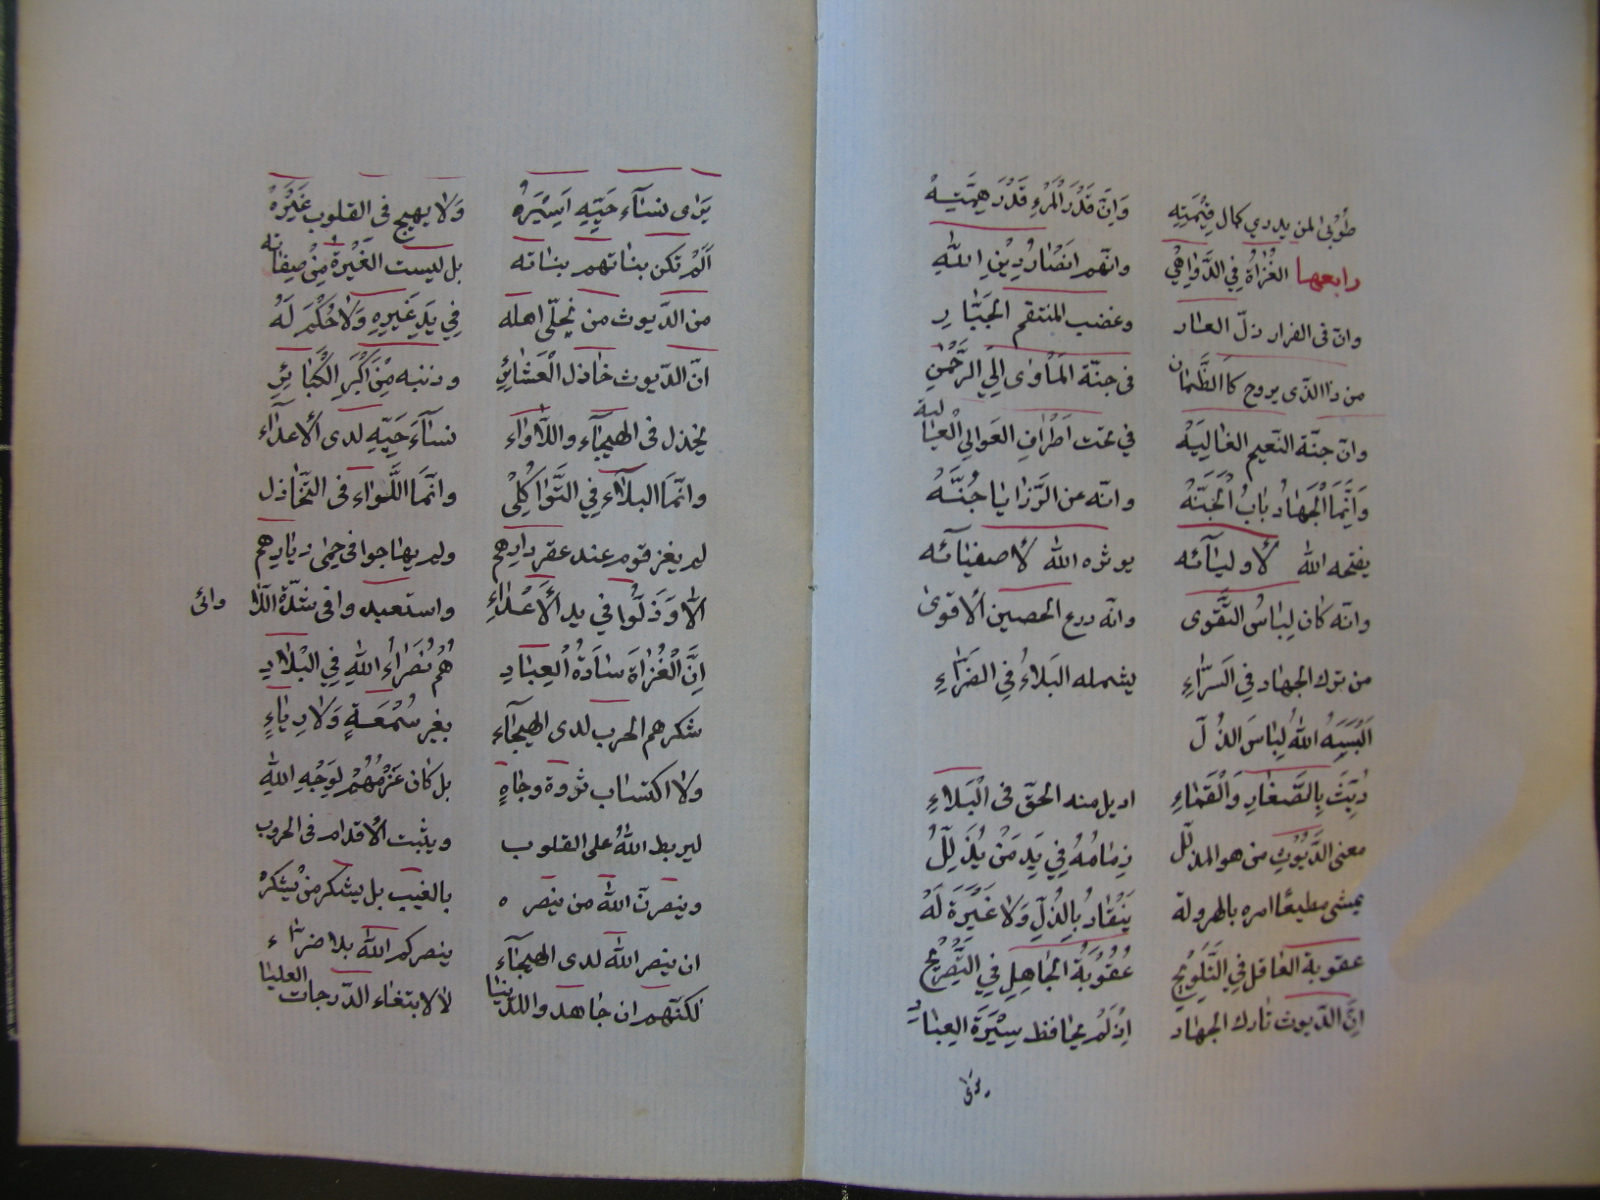 طُوبٰى لمن يدري كمال قِيمَتِه وَانّ قَدْرَ الْمَرْءِ قَدْرَ هِمَّتِه
رابعها الغُزاةُ في الدَّوَاهِي وانّهم انصَارُ دِيْنِ اللهِ
وانّ فى الفرار ذلّ العار وغضب المنتقم الجَبَّارِ
من ذا الذى يروح كالظَّمآن فى جنّة المَأوٰى الى الرَّحْمٰنِ
وانّ جنّة النّعيم الغاليَهْ في تحت اَطْرافِ العَوالي العاليه
وَاِنَّمَا الْجِهادُ بابُ الْجَنَّهْ وانّه عن الرَّزايا جُنَّهْ
يفتحه الله لأوليآئه يوثره الله لأصفيآئه
وانّه كان لِباسُ التَّقوى وانّه درع الحصين الأقوىٰ
من ترك الجهاد في السَّرّاءِ يشمله البَلاءُ فِي الضَّرّاءِ
اَلْبَسَهُ اللهُ لِباسَ الذّلّ
دُيِّثَ بِالصَّغارِ وَالْقَماءِ اديل منه الحقّ فى الْبَلاءِ
معنى الدَّيُّوثِ من هو المذلّل زِمَامُهُ فِي يَدِ مَنْ يُذَلِّلُ
يمشى مطيعًا امره بالهرولة يَنْقادُ بِالذُّلِّ وَلا غَيْرَةَ لَهُ
عقوبة العاقل فِي التَّلوِيْحِ عُقُوبَةُ الجاهِلِ فِي التَّصْرِيْحِ
اِنَّ الدّيوث تارك الجهاد اِذْ لَمْ يحافظ سِيْرَةَ العِبادِ
يرٰى
يَرٰى نسآء حَيِّهِ اَسِيْرَهْ وَلا يهيج فى القلوب غَيْرَهْ
اَلَمْ تكن بناتهم بناته بل ليست الغَيْرة مِنْ صِفاته
من الدّيوث من يُحَلّى اهله فِي يَدِ غَيرِهِ وَلا حُكْمَ لَهُ
انّ الدّيوث خاذل الْعَشائِرِ وذنبه مِنْ اَكْبَرِ الْكَبائِرِ
يخذل فى الهيجآء واللَّاوَاء نسآءَ حَيِّهِ لدى الأعدآء
وانّما البلآء فِي التَّواكُلِ وانّمَا اللَّأواء فى التَّخاذل
لم يغز قوم عند عقر دارهم ولم يهاجوا في حِمٰى ديارهم
الّا وَذَلُّوا في يد الأَعْدآءِ واستعبدوا فى شدّة اللّا وائى
اِنَّ الْغُزاةَ سادَةُ الْعِبادِ هُمْ نُصَراءُ اللهِ فِي الْبِلادِ
شكرهم الحرب لدى الهيجآء بغير سُمْعَةٍ وَلا رِيآءٍ
ولا اكتساب ثروة وجاهٍ بل كان عَزْمُهُمْ لِوَجْهِ اللهِ
ليربط اللهُ على القلوب ويثبت الأقدام فى الحروب
وينصرنّ اللهُ من ينصره بالغيب بل يشكر مَنْ يَشكره
ان ينصر الله لدى الهيجآء ينصركم الله بلا ضرّاء
لكنّهم ان جاهدوا للدّنيا لا لابتغاء الدّرجات العليا